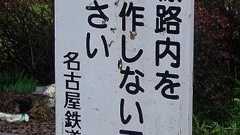 路内を
作しない
さい
名古屋鉄道